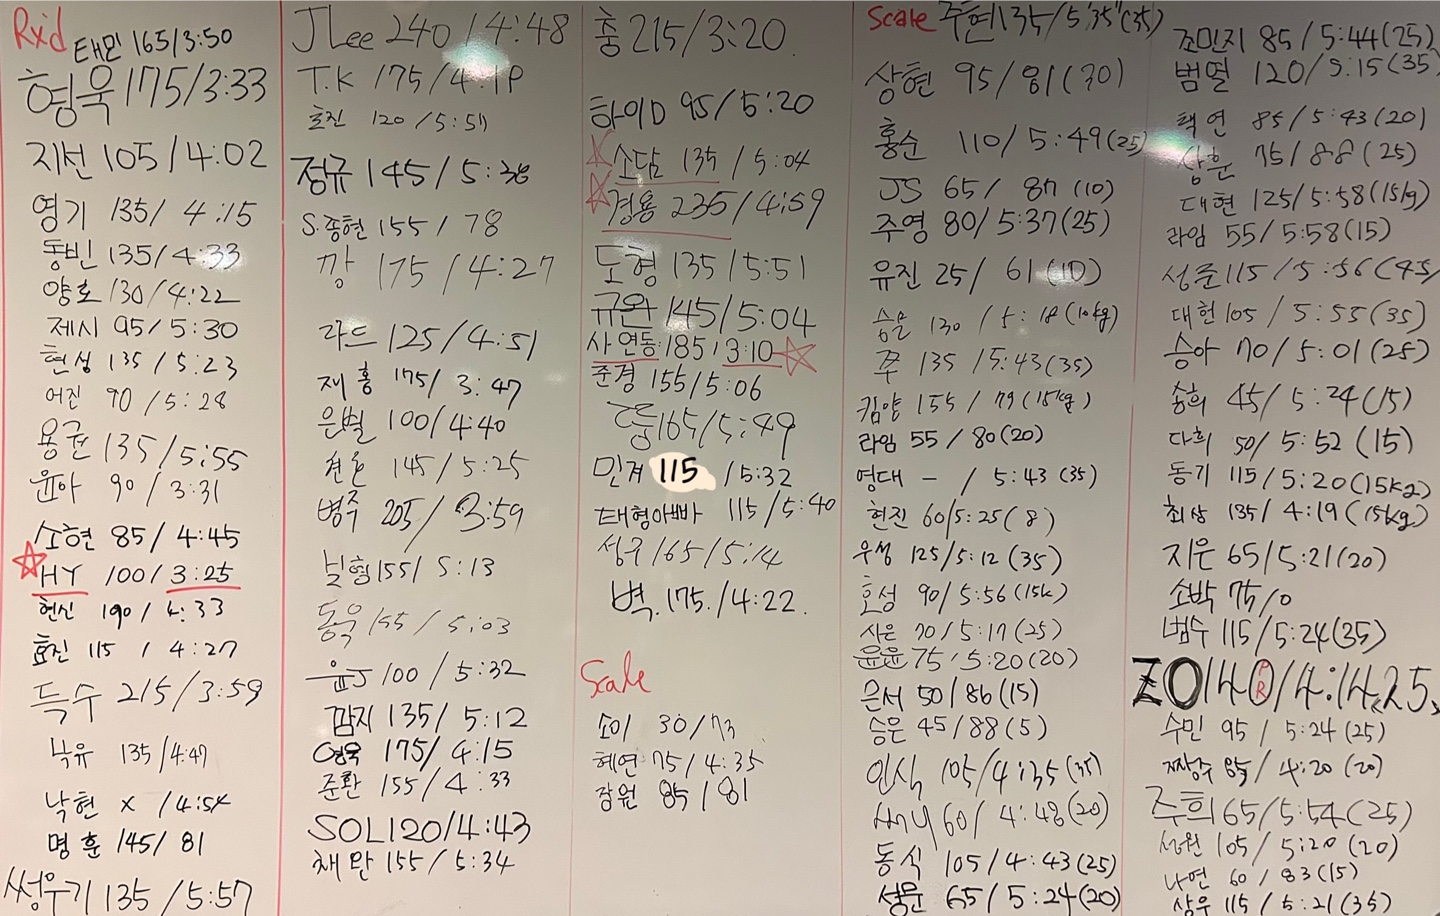 Rxd
태민 165/3:50
형욱 175/3:33
지선 105/4:02
영기 135/4:15
동빈 135/4:33
양호 130/4:22
제시 95/5:30
현성 135/5:23
어진 90/5:28
용균 135/5:55
윤아 90/3:31
소현 85/4:45
HY 100/3:25
현신 190/4:33
효진 115/4:27
득수 215/3:59
낙유 135/4:47
낙현 x/4:54
명훈 145/81
썽우기 135/5:57
JLee 240/4:48
T.K 175/4:19
효진 120/5:51
정규 145/5:38
S.종현 155/78
깡 175/4:27
라드 125/4:51
재홍 175/3:47
은별 100/4:40
145/5:25
병주 205/3:59
155/5:13
동욱 155/5:03
윤J 100/5:32
깜지 135/5:12
영욱 175/4:15
준환 155/4:33
SOL 120/4:43
채완 155/5:34
충 215/3:20
하이D 95/5:20
소담 135/5:04
경용 235/4:59
도형 135/5:51
규완 145/5:04
사연동 185/3:10
준경 155/5:06
165/5:49
민겨 115/5:32
태형아빠 115/5:40
성구 165/5:14
벽. 175./4:22.
Scale
소이 30/73
혜연 75/4:35
장원 85/81
Scale
주현 135/5'35"(35)
상현 95/81(30)
홍순 110/5:49(25)
JS 65/87(10)
주영 80/5:37(25)
유진 25/61(10)
승문 130/5:18(10kg)
쭈 135/5:43(35)
킴양 155/79(15kg)
라임 55/80(20)
영대 -/5:43(35)
현진 60/5:25(8)
우성 125/5:12(35)
호성 90/5:56(15k)
사은 70/5:17(25)
윤윤 75/5:20(20)
은서 50/86(15)
승은 45/88(5)
인식 105/4:35(35)
써니 60/4:48(20)
동식 105/4:43(25)
성윤 65/5:24(20)
조민지 85/5:44(25)
범떨 120/5:15(35)
택연 85/5:43(20)
상훈 75/88(25)
대현 125/5:58(15kg)
라임 55/5:58(15)
성준 115/5:56(45)
대헌 105/5:55(35)
승아 70/5:01(25)
송희 45/5:24(15)
다희 50/5:52(15)
동기 115/5:20(15kg)
최상 135/4:19(15kg)
지은 65/5:21(20)
소박 75/0
범수 115/5:24(35)
ZO 140/4:14
PR
수민 95/5:24(25)
짜장수 85/4:20(20)
주희 65/5:54(25)
성원 105/5:20(20)
나연 60/83(15)
상우 115/5:21(35)